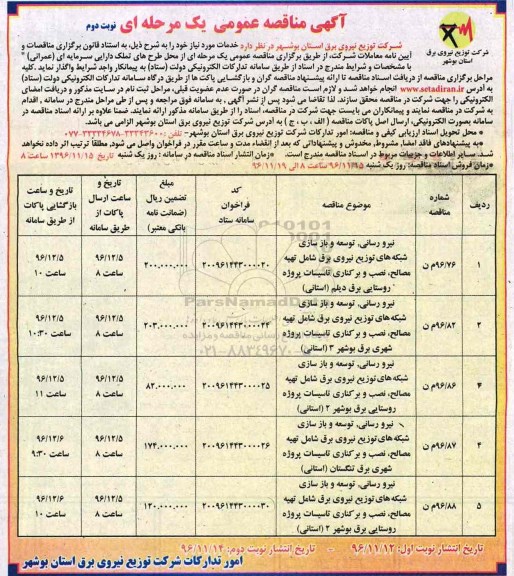 آگهی مناقصه عمومی یک مرحله ای نوبت دوم
شرکت توزیع نیروی برق
استان بوشهر
شرکت توزیع نیروی برق استان بوشهر در نظر دارد خدمات مورد نیاز خود را به شرح ذیل، به استناد قانون برگزاری مناقصات و
آیین نامه معاملات شرکت، از طریق برگزاری مناقصه عمومی یک مرحله ای از محل طرح های تملک دارایی سرمایه ای (عمرانی)
با مشخصات و شرایط مندرج در اسناد از طریق سامانه تدارکات الکترونیکی دولت (ستاد) به پیمانکار واجد شرایط واگذار نماید. کلیه
مراحل برگزاری مناقصه از دریافت اسناد مناقصه تا ارائه پیشنهاد مناقصه گران و بازگشایی پاکت ها از طریق درگاه سامانه تدارکات الکترونیکی دولت (ستاد)
به آدرس www.setadiran.ir انجام خواهد شد و لازم است مناقصه گران در صورت عدم عضویت قبلی، مراحل ثبت نام در سایت مذکور و دریافت امضای
الکترونیکی را جهت شرکت در مناقصه محقق سازند. لذا تقاضا می شود پس از نشر آگهی، به سامانه فوق مراجعه و پس از طی مراحل مندرج در سامانه، اقدام
به شرکت در مناقصه نمایند و پیمانکاران می بایست جهت شرکت در مناقصه، اسناد را از طریق سامانه مذکور ارائه نمایند. ضمنا علاوه بر ارائه اسناد مناقصه در
سامانه بصورت الکترونیکی، ارسال اصل پاکات مناقصه (الف، ب، ج) به آدرس شرکت توزیع نیروی برق استان بوشهر الزامی می باشد.
* محل تحویل اسناد ارزیابی کیفی و مناقصه: امور تدارکات شرکت توزیع نیروی برق استان بوشهر- تلفن:
* به پیشنهادهای فاقد امضا، مشروط، مخدوش و پیشنهاداتی که بعد از انقضاء مدت و ساعت مقرر در فراخوان واصل می شود، مطلقا ترتیب اثر داده نخواهد
شد. سایر اطلاعات و جزییات مربوط در اسناد مناقصه مندرج است. *زمان انتشار اسناد مناقصه در سامانه: روز یک شنبه تاریخ ۱۳۹۶/۱۱/۱۵ ساعت ۸
*زمان فروش اسناد مناقصه: روز یک شنبه ۹۶/۱۱/۱۵ ساعت ۸ الی ۹۶/۱۱/۱۹
ردیف | شماره مناقصه | موضوع مناقصه | کد فراخوان سامانه ستاد | مبلغ تضمین ریال (ضمانت نامه بانکی معتبر) | تاریخ و ساعت ارسال پاکات از طریق سامانه | تاریخ و ساعت بازگشایی پاکات از طریق سامانه
۱ | ۹۶/۷۶م ن | نیرو رسانی، توسعه و باز سازی شبکه های توزیع نیروی برق شامل تهیه مصالح، نصب و برکناری تاسیسات پروژه روستایی برق دیلم (استانی) | ۲۰۰۹۶۱۴۴۳۰۰۰۰۲۰ | ۲۰۰.۰۰۰.۰۰۰ | ۹۶/۱۲/۵ ساعت ۸ | ۹۶/۱۲/۵ ساعت ۱۰
۲ | ۹۶/۸۲م ن | نیرو رسانی، توسعه و باز سازی شبکه های توزیع نیروی برق شامل تهیه مصالح، نصب و برکناری تاسیسات پروژه شهری برق بوشهر ۳ (استانی) | ۲۰۰۹۶۱۴۴۳۰۰۰۰۲۴ | ۲۰۳.۰۰۰.۰۰۰ | ۹۶/۱۲/۵ ساعت ۸ | ۹۶/۱۲/۵ ساعت ۱۰:۳۰
۳ | ۹۶/۸۶م ن | نیرو رسانی، توسعه و باز سازی شبکه های توزیع نیروی برق شامل تهیه مصالح، نصب و برکناری تاسیسات پروژه روستایی برق بوشهر ۲ (استانی) | ۲۰۰۹۶۱۴۴۳۰۰۰۰۲۵ | ۸۲.۰۰۰.۰۰۰ | ۹۶/۱۲/۵ ساعت ۸ | ۹۶/۱۲/۵ ساعت ۱۱
۴ | ۹۶/۸۷م ن | نیرو رسانی، توسعه و باز سازی شبکه های توزیع نیروی برق شامل تهیه مصالح، نصب و برکناری تاسیسات پروژه شهری برق تنگستان (استانی) | ۲۰۰۹۶۱۴۴۳۰۰۰۰۲۶ | ۱۷۴.۰۰۰.۰۰۰ | ۹۶/۱۲/۵ ساعت ۸ | ۹۶/۱۲/۶ ساعت ۹:۳۰
۵ | ۹۶/۸۸م ن | نیرو رسانی، توسعه و باز سازی شبکه های توزیع نیروی برق شامل تهیه مصالح، نصب و برکناری تاسیسات پروژه روستایی برق بوشهر ۲ (استانی) | ۲۰۰۹۶۱۴۴۳۰۰۰۰۳۰ | ۱۲۰.۰۰۰.۰۰۰ | ۹۶/۱۲/۵ ساعت ۸ | ۹۶/۱۲/۶ ساعت ۱۰
تاریخ انتشار نوبت اول: ۹۶/۱۱/۱۲ - تاریخ انتشار نوبت دوم: ۹۶/۱۱/۱۴
امور تدارکات شرکت توزیع نیروی برق استان بوشهر